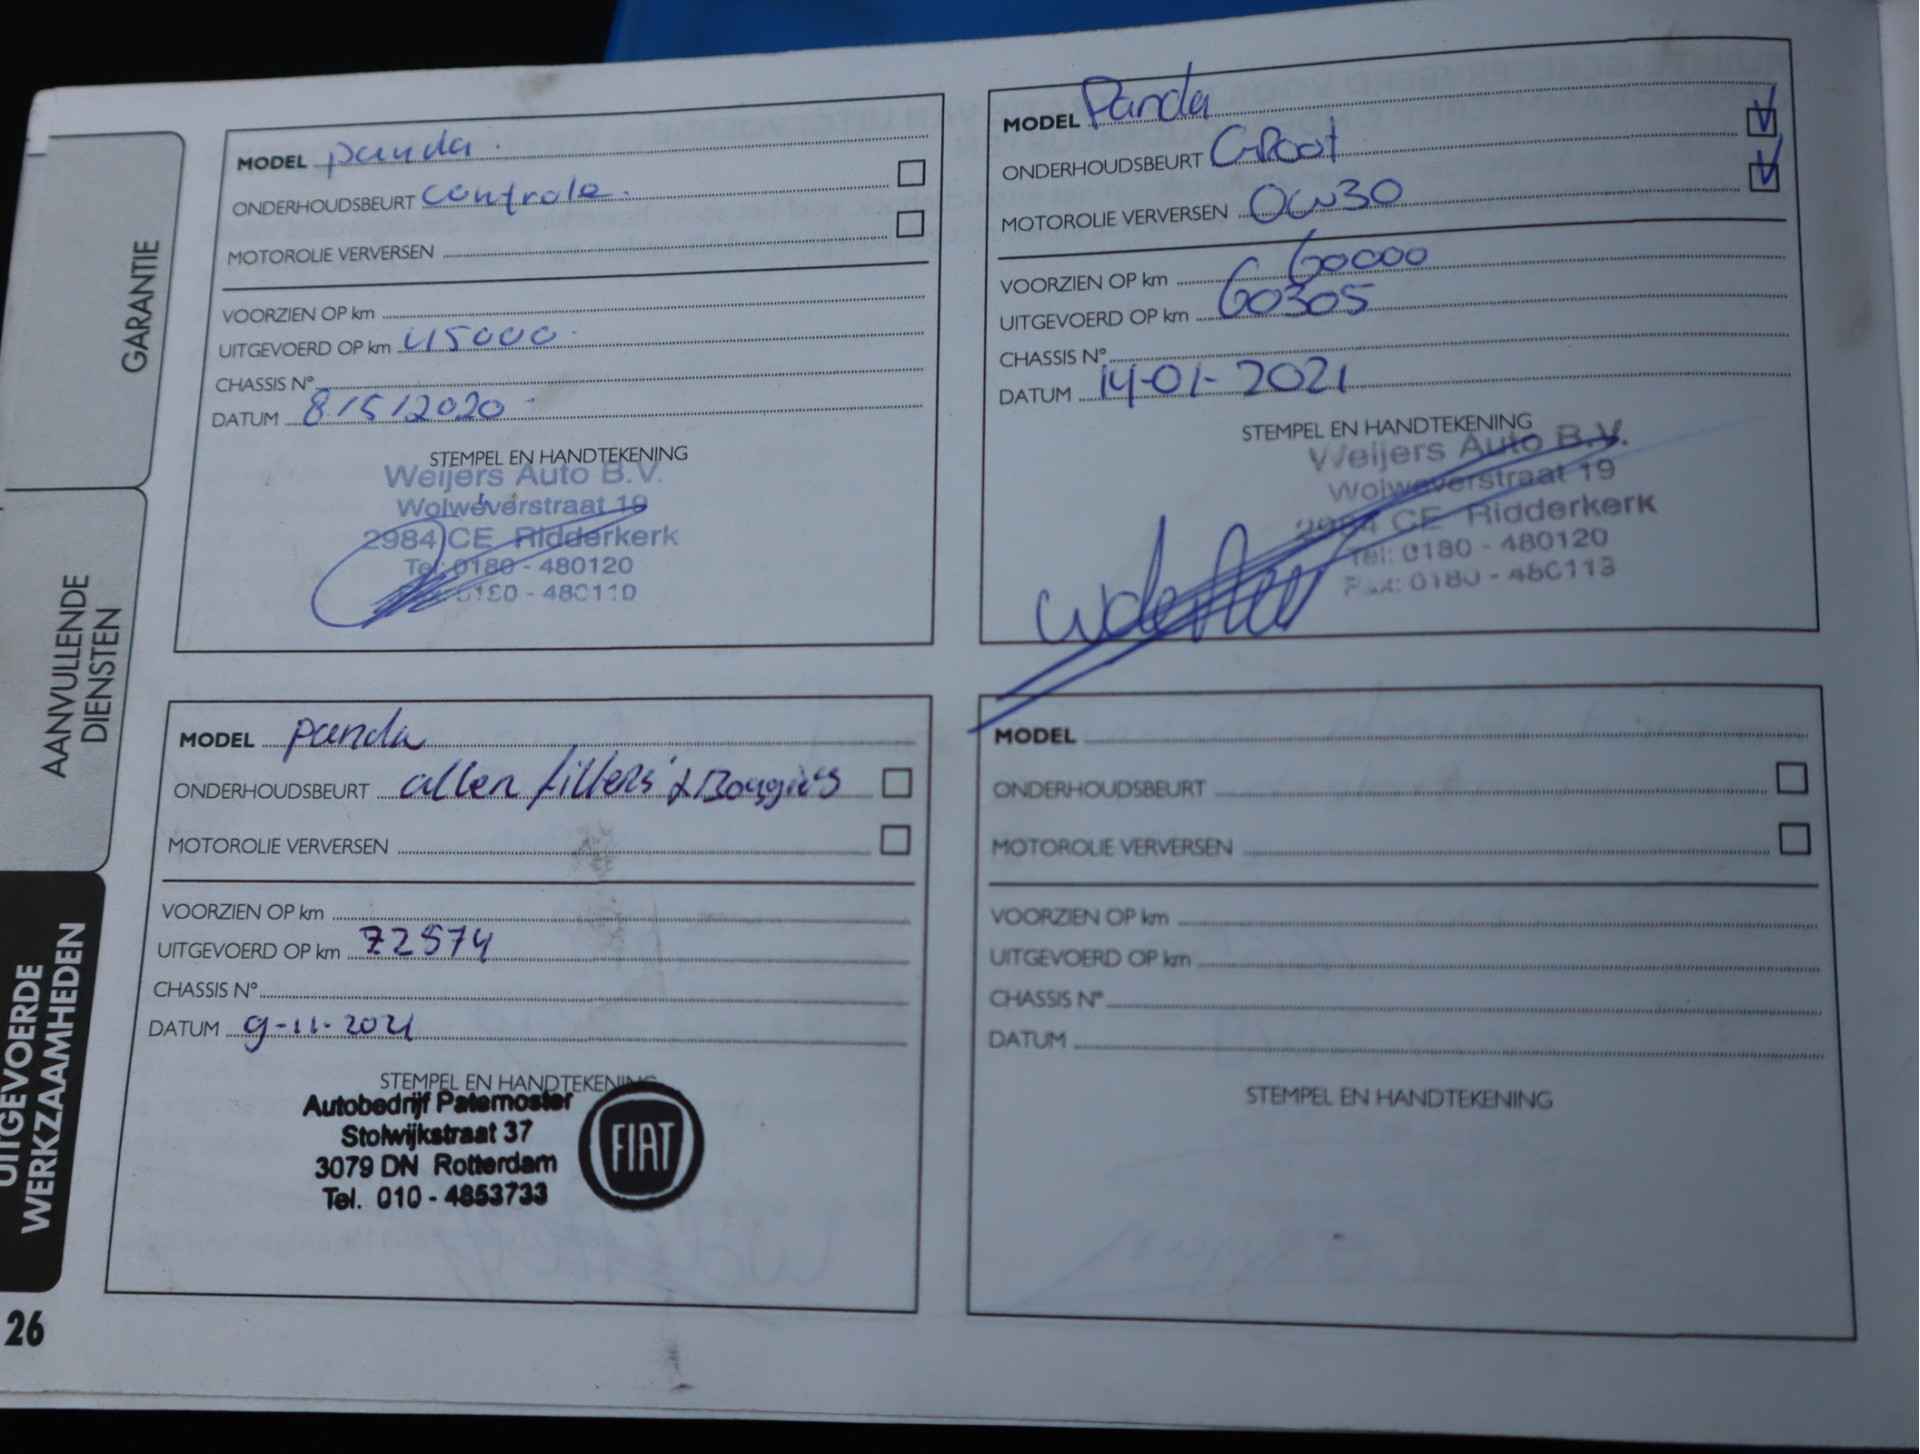 GARANTIE
AANVULLENDE
DIENSTEN
UITGEVOERDE
WERKZAAMHEDEN
26
MODEL panda.
ONDERHOUDSBEURT controle.
MOTOROLIE VERVERSEN
VOORZIEN OP km
UITGEVOERD OP km 45000.
CHASSIS N°
DATUM 8/5/2020
STEMPEL EN HANDTEKENING
Weijers Auto B.V.
Wolweverstraat 19
2984 CE Ridderkerk
Tel: 0180 - 480120
0180 - 480110
MODEL Panda
ONDERHOUDSBEURT GRoot
MOTOROLIE VERVERSEN 0W30
VOORZIEN OP km 60000
UITGEVOERD OP km 60305
CHASSIS N°
DATUM 14-01-2021
STEMPEL EN HANDTEKENING
Weijers Auto B.V.
Wolweverstraat 19
2984 CE Ridderkerk
Tel: 0180 - 480120
Fax: 0180 - 480113
MODEL panda
ONDERHOUDSBEURT allen filters & Bougies
MOTOROLIE VERVERSEN
VOORZIEN OP km
UITGEVOERD OP km 72574
CHASSIS N°
DATUM 9-11-2021
STEMPEL EN HANDTEKENING
Autobedrijf Paternoster
Stolwijkstraat 37
3079 DN Rotterdam
Tel. 010 - 4853733
FIAT
MODEL
ONDERHOUDSBEURT
MOTOROLIE VERVERSEN
VOORZIEN OP km
UITGEVOERD OP km
CHASSIS N°
DATUM
STEMPEL EN HANDTEKENING